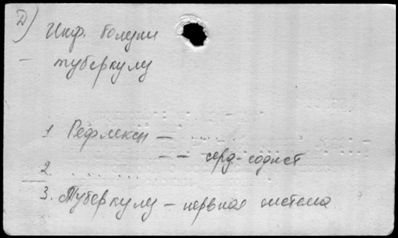 Д) Инф. болезни
– туберкулез
1. Рефлексы –
– – серд.-
2.
3. Туберкулез – нервная система